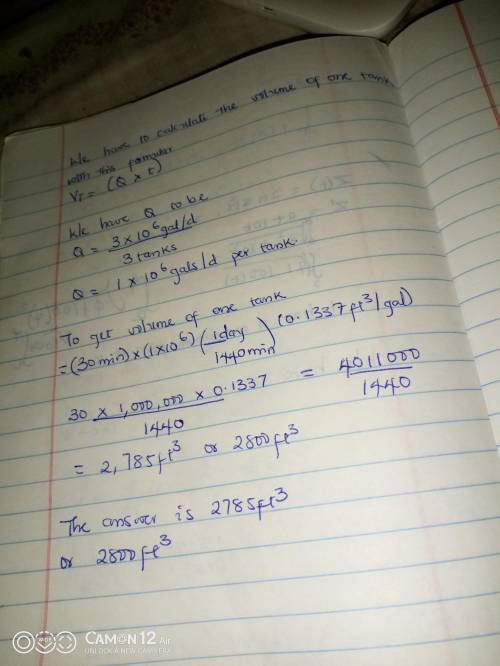 We have to calculate the volume of one tank
with this formular
VT = (Q x t)
We have Q to be
Q = 3 x 10⁶ gal/d
3 tanks
Q = 1 x 10⁶ gals/d per tank.
To get volume of one tank
= (30min) x (1x10⁶) (1day / 1440min) (0.1337ft³/gal)
30 x 1,000,000 x 0.1337 / 1440 = 4011000 / 1440
= 2,785ft³ or 2800ft³
The answer is 2785ft³
or 2800ft³
CAMON 12 Air
UNLOCK A NEW CAMERA